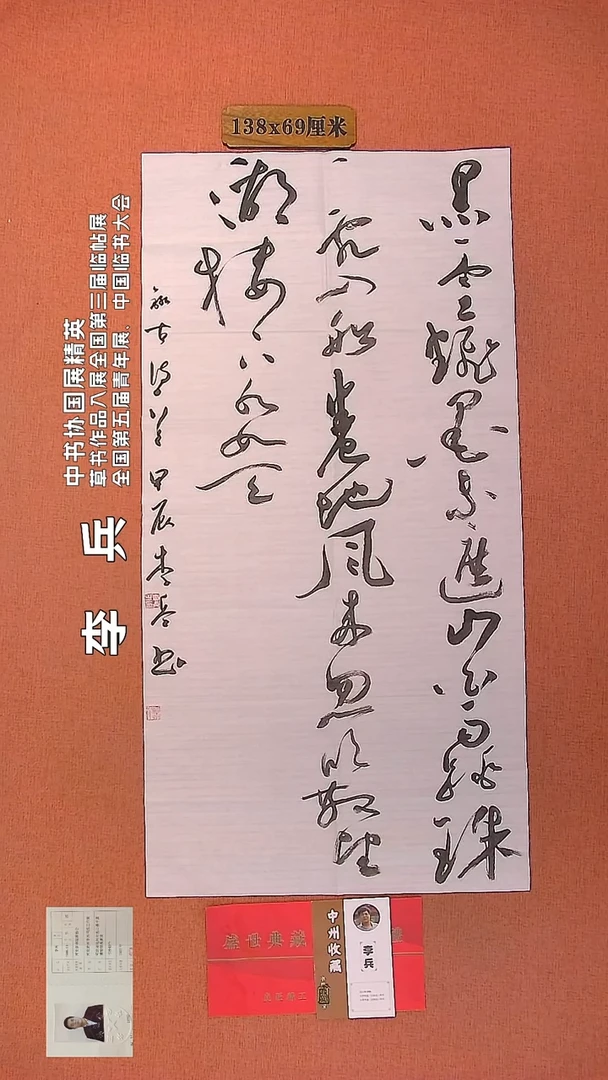 138x69厘米
黑雲翻墨未遮山白雨跳珠
亂入船卷地風來忽吹散望
湖樓下水如天
錄古詩一首 甲辰李兵書
中书协国展精英
草书作品入展全国第三届临帖展
全国第五届青年展、中国临书大会
李 兵
盛世典藏
中州收藏
李兵